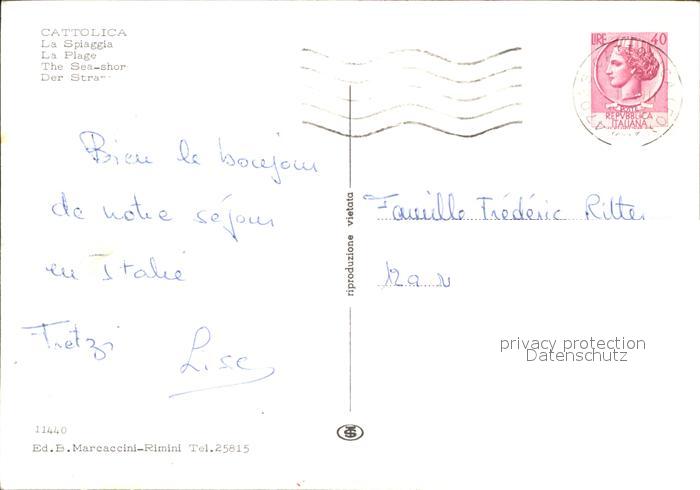 CATTOLICA
La Spiaggia
La Plage
The Sea-shor
Der Stran
LIRE 40
POSTE
REPVBBLICA
ITALIANA
Bien le bonjour
de notre séjour
en Italie
Lise
riproduzione vietata
Famille Frédéric Ritter
privacy protection
Datenschutz
11440
Ed.B.Marcaccini-Rimini Tel.25815